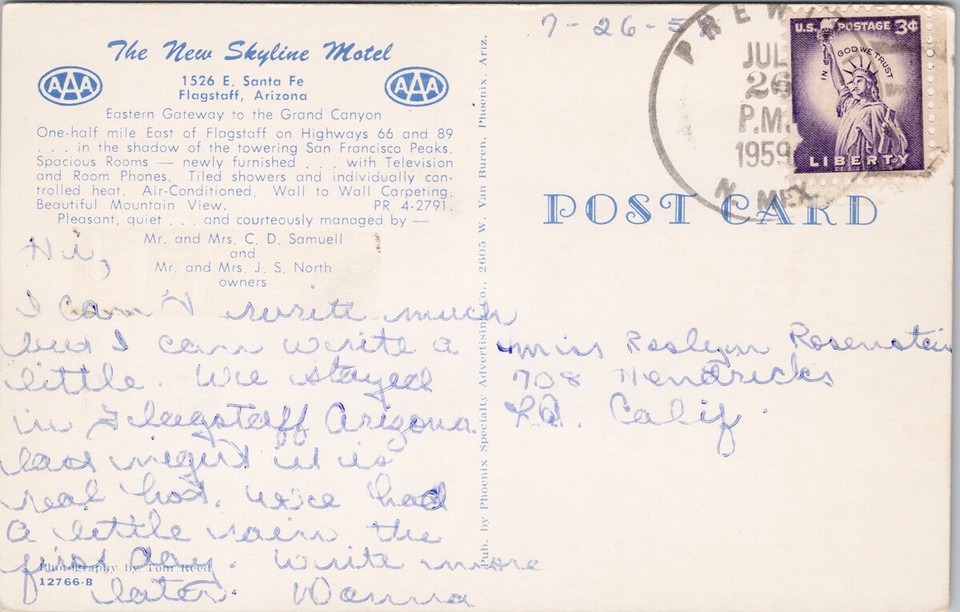 The New Skyline Motel
AAA
AAA
1526 E. Santa Fe
Flagstaff, Arizona
Eastern Gateway to the Grand Canyon
One-half mile East of Flagstaff on Highways 66 and 89
. . . in the shadow of the towering San Francisco Peaks.
Spacious Rooms — newly furnished . . . with Television
and Room Phones. Tiled showers and individually con-
trolled heat. Air-Conditioned. Wall to Wall Carpeting.
Beautiful Mountain View. PR 4-2791
Pleasant, quiet . . . and courteously managed by —
Mr. and Mrs. C. D. Samuell
and
Mr. and Mrs. J. S. North
owners
Hi,
I can't write much
but I can write a
little. We stayed
in Flagstaff Arizona
last night it is
real hot. we had
a little rain the
first day. Write more
later. Donna
Photography by Tom Reed
12766-B
Pub. by Phoenix Specialty Advertising Co., 2605 W. Van Buren, Phoenix, Ariz.
7-26-5
JUL
26
P.M.
1959
N. MEX.
U.S. POSTAGE 3¢
IN GOD WE TRUST
LIBERTY
POST CARD
Miss Roslynn Rosenstein
708 Hendricks
LA. Calif.